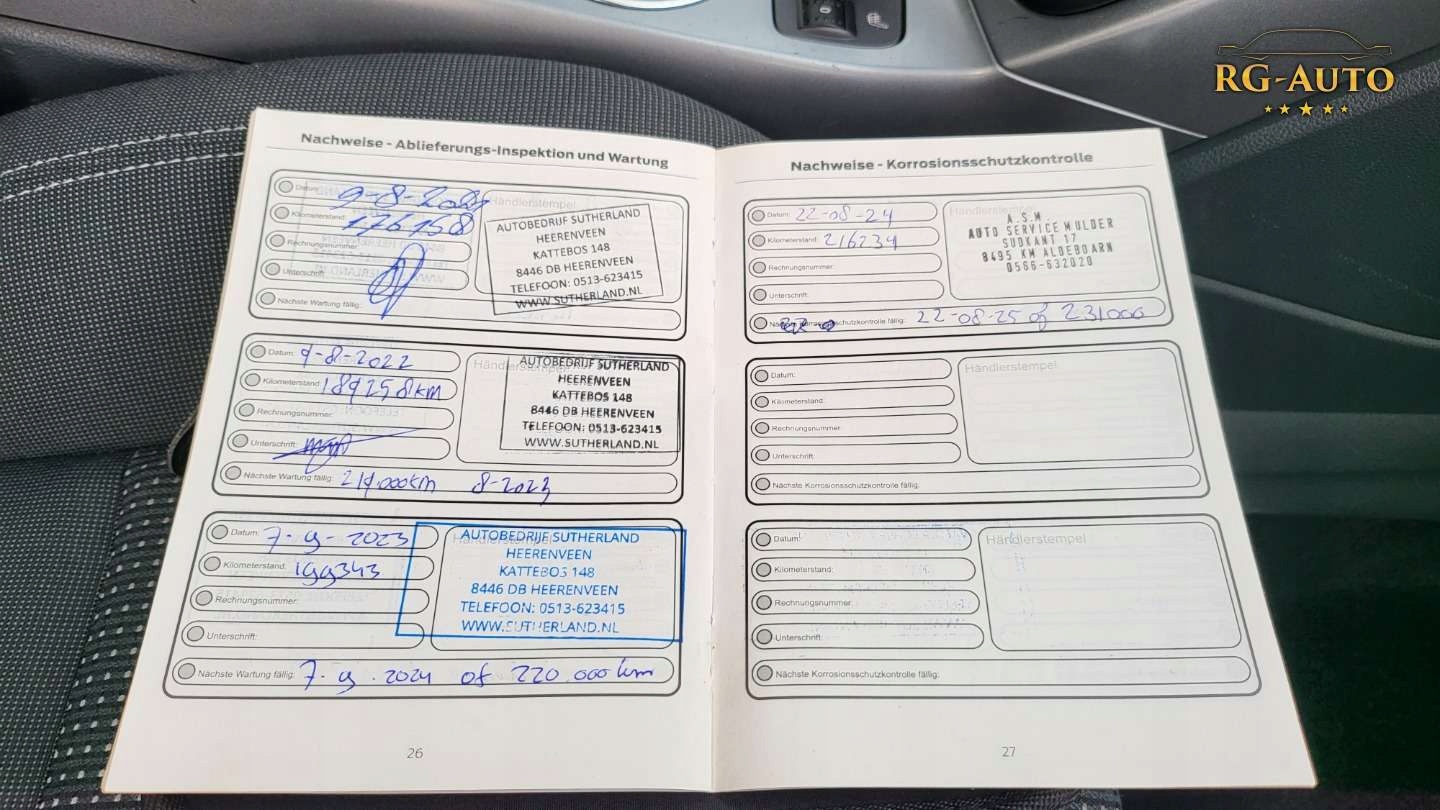 RG-AUTO
Nachweise - Ablieferungs-Inspektion und Wartung
Datum: 9-8-2021
Kilometerstand: 176158
Rechnungsnummer:
Unterschrift:
Nächste Wartung fällig:
Händlerstempel
AUTOBEDRIJF SUTHERLAND
HEERENVEEN
KATTEBOS 148
8446 DB HEERENVEEN
TELEFOON: 0513-623415
WWW.SUTHERLAND.NL
Datum: 9-8-2022
Kilometerstand: 189258km
Rechnungsnummer:
Unterschrift:
Händlerstempel
AUTOBEDRIJF SUTHERLAND
HEERENVEEN
KATTEBOS 148
8446 DB HEERENVEEN
TELEFOON: 0513-623415
WWW.SUTHERLAND.NL
Nächste Wartung fällig: 214.000km 8-2023
Datum: 7-9-2023
Kilometerstand: 199343
Rechnungsnummer:
Unterschrift:
AUTOBEDRIJF SUTHERLAND
HEERENVEEN
KATTEBOS 148
8446 DB HEERENVEEN
TELEFOON: 0513-623415
WWW.SUTHERLAND.NL
Nächste Wartung fällig: 7-9-2024 of 220.000km
26
Nachweise - Korrosionsschutzkontrolle
Datum: 22-08-24
Kilometerstand: 216234
Rechnungsnummer:
Unterschrift:
Händlerstempel
A.S.M.
AUTO SERVICE MULDER
SUDKANT 17
8495 KM ALDEBOARN
0566-632020
Nächste Korrosionsschutzkontrolle fällig: 22-08-25 of 231000
Datum:
Kilometerstand:
Rechnungsnummer:
Unterschrift:
Händlerstempel
Nächste Korrosionsschutzkontrolle fällig:
Datum:
Kilometerstand:
Rechnungsnummer:
Unterschrift:
Händlerstempel
Nächste Korrosionsschutzkontrolle fällig:
27